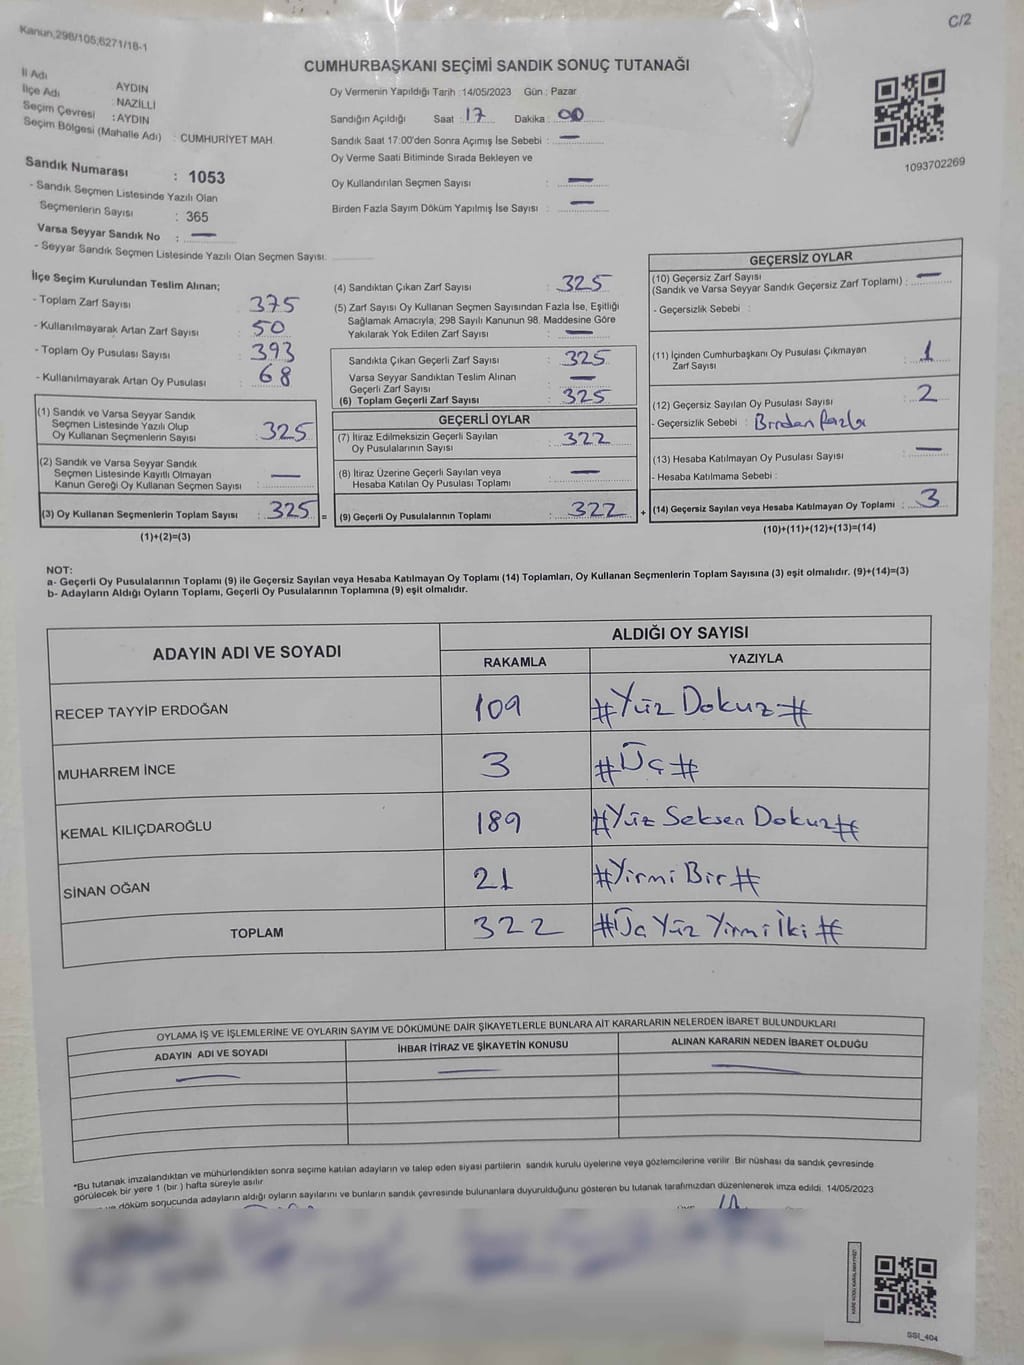 C/2
Kanun,298/105;6271/18-1
CUMHURBAŞKANI SEÇİMİ SANDIK SONUÇ TUTANAĞI
İl Adı AYDIN
İlçe Adı : NAZİLLİ
Seçim Çevresi : AYDIN
Seçim Bölgesi (Mahalle Adı) : CUMHURİYET MAH
Oy Vermenin Yapıldığı Tarih :14/05/2023 Gün : Pazar
Sandığın Açıldığı Saat : 17 Dakika : 00
Sandık Saat 17:00'den Sonra Açımış İse Sebebi : —
Oy Verme Saati Bitiminde Sırada Bekleyen ve
Oy Kullandırılan Seçmen Sayısı : —
Birden Fazla Sayım Döküm Yapılmış İse Sayısı : —
1093702269
Sandık Numarası : 1053
- Sandık Seçmen Listesinde Yazılı Olan
Seçmenlerin Sayısı : 365
Varsa Seyyar Sandık No : —
- Seyyar Sandık Seçmen Listesinde Yazılı Olan Seçmen Sayısı:
İlçe Seçim Kurulundan Teslim Alınan;
- Toplam Zarf Sayısı 375
- Kullanılmayarak Artan Zarf Sayısı : 50
- Toplam Oy Pusulası Sayısı : 393
- Kullanılmayarak Artan Oy Pusulası : 68
(1) Sandık ve Varsa Seyyar Sandık
Seçmen Listesinde Yazılı Olup
Oy Kullanan Seçmenlerin Sayısı : 325
(2) Sandık ve Varsa Seyyar Sandık
Seçmen Listesinde Kayıtlı Olmayan
Kanun Gereği Oy Kullanan Seçmen Sayısı : —
(3) Oy Kullanan Seçmenlerin Toplam Sayısı : 325 =
(1)+(2)=(3)
(4) Sandıktan Çıkan Zarf Sayısı : 325
(5) Zarf Sayısı Oy Kullanan Seçmen Sayısından Fazla İse, Eşitliği
Sağlamak Amacıyla; 298 Sayılı Kanunun 98. Maddesine Göre
Yakılarak Yok Edilen Zarf Sayısı : —
Sandıkta Çıkan Geçerli Zarf Sayısı : 325
Varsa Seyyar Sandıktan Teslim Alınan
Geçerli Zarf Sayısı : —
(6) Toplam Geçerli Zarf Sayısı : 325
GEÇERLİ OYLAR
(7) İtiraz Edilmeksizin Geçerli Sayılan
Oy Pusulalarının Sayısı : 322
(8) İtiraz Üzerine Geçerli Sayılan veya
Hesaba Katılan Oy Pusulası Toplamı : —
(9) Geçerli Oy Pusulalarının Toplamı : 322 +
GEÇERSİZ OYLAR
(10) Geçersiz Zarf Sayısı
(Sandık ve Varsa Seyyar Sandık Geçersiz Zarf Toplamı) : —
- Geçersizlik Sebebi :
(11) İçinden Cumhurbaşkanı Oy Pusulası Çıkmayan
Zarf Sayısı : 1
(12) Geçersiz Sayılan Oy Pusulası Sayısı : 2
- Geçersizlik Sebebi : Birden fazla
(13) Hesaba Katılmayan Oy Pusulası Sayısı : —
- Hesaba Katılmama Sebebi :
(14) Geçersiz Sayılan veya Hesaba Katılmayan Oy Toplamı : 3
(10)+(11)+(12)+(13)=(14)
NOT:
a- Geçerli Oy Pusulalarının Toplamı (9) ile Geçersiz Sayılan veya Hesaba Katılmayan Oy Toplamı (14) Toplamları, Oy Kullanan Seçmenlerin Toplam Sayısına (3) eşit olmalıdır. (9)+(14)=(3)
b- Adayların Aldığı Oyların Toplamı, Geçerli Oy Pusulalarının Toplamına (9) eşit olmalıdır.
ADAYIN ADI VE SOYADI ALDIĞI OY SAYISI
RAKAMLA YAZIYLA
RECEP TAYYİP ERDOĞAN 109 #Yüz Dokuz#
MUHARREM İNCE 3 #Üç#
KEMAL KILIÇDAROĞLU 189 #Yüz Seksen Dokuz#
SİNAN OĞAN 21 #Yirmi Bir#
TOPLAM 322 #Üç Yüz Yirmi İki#
OYLAMA İŞ VE İŞLEMLERİNE VE OYLARIN SAYIM VE DÖKÜMÜNE DAİR ŞİKAYETLERLE BUNLARA AİT KARARLARIN NELERDEN İBARET BULUNDUKLARI
ADAYIN ADI VE SOYADI İHBAR İTİRAZ VE ŞİKAYETİN KONUSU ALINAN KARARIN NEDEN İBARET OLDUĞU
— — —
*Bu tutanak imzalandıktan ve mühürlendikten sonra seçime katılan adayların ve talep eden siyasi partilerin sandık kurulu üyelerine veya gözlemcilerine verilir. Bir nüshası da sandık çevresinde
görülecek bir yere 1 (bir ) hafta süreyle asılır.
ve döküm sonucunda adayların aldığı oyların sayılarını ve bunların sandık çevresinde bulunanlara duyurulduğunu gösteren bu tutanak tarafımızdan düzenlenerek imza edildi. 14/05/2023
SSI_404